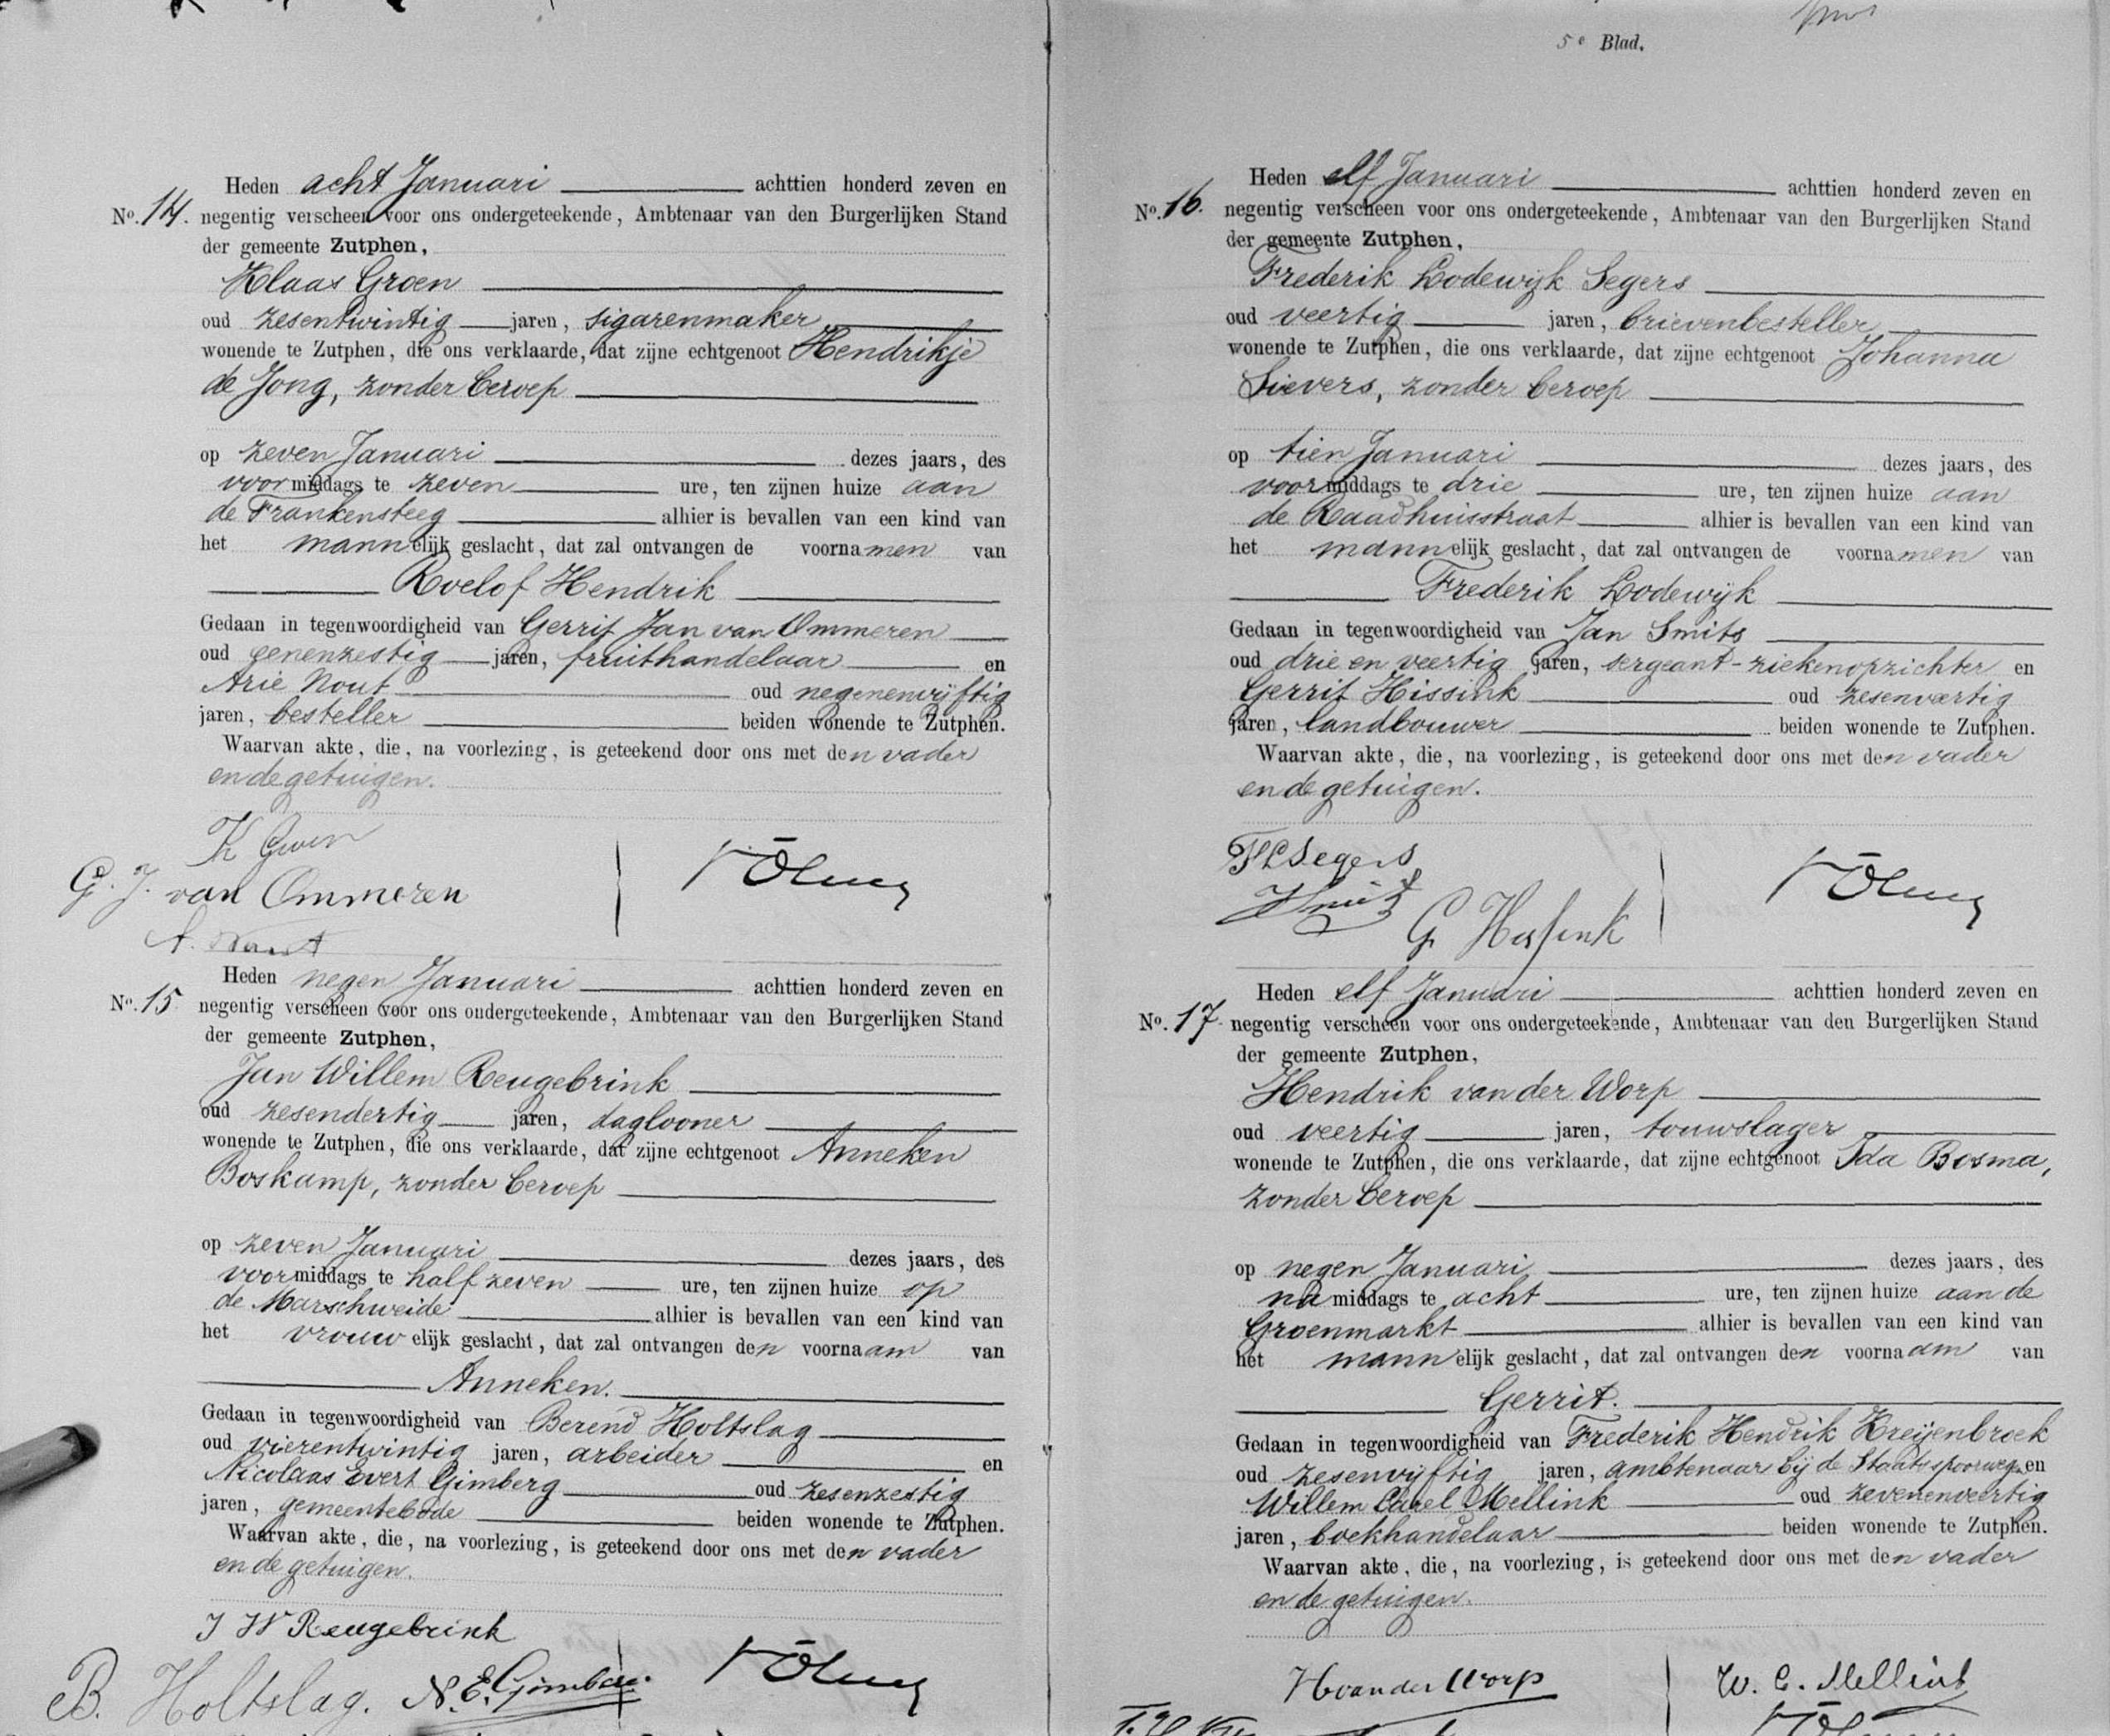 Heden acht Januari achttien honderd zeven en
No. 14. negentig verscheen voor ons ondergeteekende, Ambtenaar van den Burgerlijken Stand
der gemeente Zutphen,
Klaas Groen
oud zesentwintig jaren, sigarenmaker
wonende te Zutphen, die ons verklaarde, dat zijne echtgenoot Hendrikje
de Jong, zonder beroep
op zeven Januari dezes jaars, des
voormiddags te zeven ure, ten zijnen huize aan
de Frankensteeg alhier is bevallen van een kind van
het mannelijk geslacht, dat zal ontvangen de voornamen van
Roelof Hendrik
Gedaan in tegenwoordigheid van Gerrit Jan van Ommeren
oud eenenzestig jaren, fruithandelaar en
Arie Nout oud negenenvijftig
jaren, besteller beiden wonende te Zutphen.
Waarvan akte, die, na voorlezing, is geteekend door ons met den vader
en de getuigen.
K Groen
G. J. van Ommeren
A. Nout
Heden negen Januari achttien honderd zeven en
No. 15 negentig verscheen voor ons ondergeteekende, Ambtenaar van den Burgerlijken Stand
der gemeente Zutphen,
Jan Willem Reugebrink
oud zesendertig jaren, daglooner
wonende te Zutphen, die ons verklaarde, dat zijne echtgenoot Anneken
Boskamp, zonder beroep
op zeven Januari dezes jaars, des
voormiddags te half zeven ure, ten zijnen huize op
de Marschweide alhier is bevallen van een kind van
het vrouwelijk geslacht, dat zal ontvangen den voornaam van
Anneken.
Gedaan in tegenwoordigheid van Berend Holtslag
oud vierentwintig jaren, arbeider en
Nicolaas Evert Gimberg oud zesenzestig
jaren, gemeentebode beiden wonende te Zutphen.
Waarvan akte, die, na voorlezing, is geteekend door ons met den vader
en de getuigen.
J W Reugebrink
B. Holtslag. N. E. Gimberg
5e Blad.
Heden elf Januari achttien honderd zeven en
No. 16. negentig verscheen voor ons ondergeteekende, Ambtenaar van den Burgerlijken Stand
der gemeente Zutphen,
Frederik Lodewijk Segers
oud veertig jaren, brievenbesteller
wonende te Zutphen, die ons verklaarde, dat zijne echtgenoot Johanna
Sievers, zonder beroep
op tien Januari dezes jaars, des
voormiddags te drie ure, ten zijnen huize aan
de Raadhuisstraat alhier is bevallen van een kind van
het mannelijk geslacht, dat zal ontvangen de voornamen van
Frederik Lodewijk
Gedaan in tegenwoordigheid van Jan Smits
oud drie en veertig jaren, sergeant-ziekenopzichter en
Gerrit Hissink oud zesenveertig
jaren, landbouwer beiden wonende te Zutphen.
Waarvan akte, die, na voorlezing, is geteekend door ons met den vader
en de getuigen.
F L Segers
G Hissink
Heden elf Januari achttien honderd zeven en
No. 17 negentig verscheen voor ons ondergeteekende, Ambtenaar van den Burgerlijken Stand
der gemeente Zutphen,
Hendrik van der Worp
oud veertig jaren, touwslager
wonende te Zutphen, die ons verklaarde, dat zijne echtgenoot Ida Bosma,
zonder beroep
op negen Januari dezes jaars, des
namiddags te acht ure, ten zijnen huize aan de
Groenmarkt alhier is bevallen van een kind van
het mannelijk geslacht, dat zal ontvangen den voornaam van
Gerrit.
Gedaan in tegenwoordigheid van Frederik Hendrik Kreijenbroek
oud zesenvijftig jaren, ambtenaar bij de Staatsspoorweg en
Willem Carel Mellink oud zevenenveertig
jaren, boekhandelaar beiden wonende te Zutphen.
Waarvan akte, die, na voorlezing, is geteekend door ons met den vader
en de getuigen.
H van der Worp W. C. Mellink